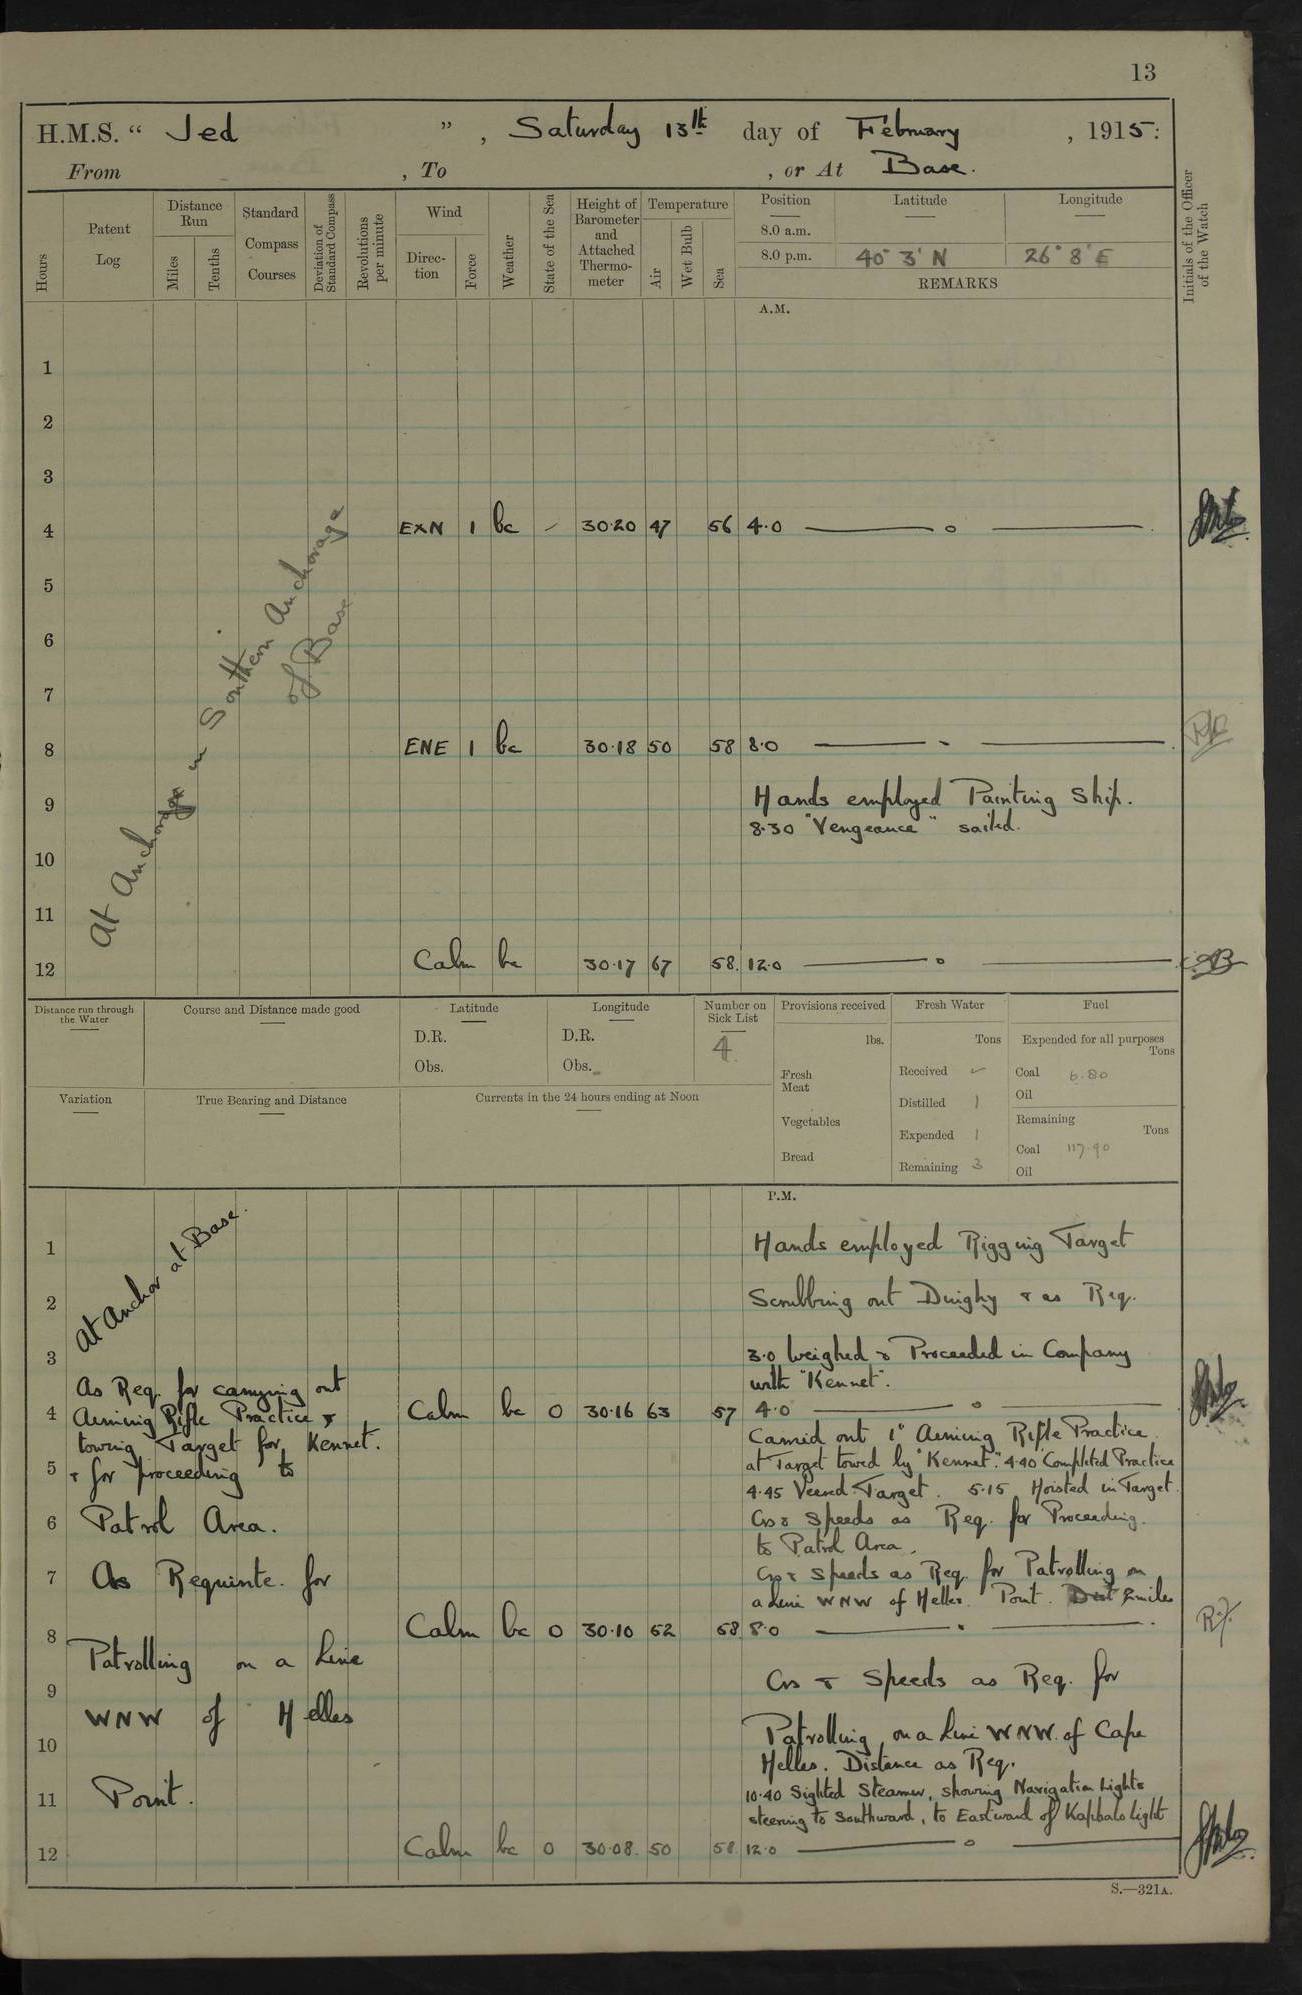 13
H.M.S. “ Jed ” , Saturday 13th day of February , 1915:
From , To , or At Base.
Hours
Patent Log
Distance Run
Miles
Tenths
Standard Compass Courses
Deviation of Standard Compass
Revolutions per minute
Wind
Direction
Force
Weather
State of the Sea
Height of Barometer and Attached Thermometer
Temperature
Air
Wet Bulb
Sea
Position Latitude Longitude
8.0 a.m.
8.0 p.m. 40° 3' N 26° 8' E
REMARKS
Initials of the Officer of the Watch
A.M.
1
2
3
4 ExN 1 bc 30·20 47 56 4·0
5
6
7
8 ENE 1 bc 30·18 50 58 8·0
At Anchorage in Southern Anchorage
of Base
9 Hands employed Painting Ship.
8·30 "Vengeance" sailed.
10
11
12 Calm bc 30·17 67 58. 12·0
Distance run through the Water
Course and Distance made good
Latitude
D.R.
Obs.
Longitude
D.R.
Obs.
Number on Sick List
4
Provisions received
lbs.
Fresh Meat
Vegetables
Bread
Fresh Water
Tons
Received
Distilled 1
Expended 1
Remaining 3
Fuel
Expended for all purposes
Tons
Coal 6.80
Oil
Remaining
Tons
Coal 117·90
Oil
Variation
True Bearing and Distance
Currents in the 24 hours ending at Noon
P.M.
At Anchor at Base.
1 Hands employed Rigging Target
2 Scrubbing out Dinghy & as Req.
3 3·0 Weighed & Proceeded in Company
with "Kennet".
As Req. for carrying out
4 Aiming Rifle Practice & Calm bc 0 30·16 63 57 4·0
towing Target for Kennet.
Carried out 1" Aiming Rifle Practice
5 & for proceeding to
at Target towed by "Kennet". 4·40 Completed Practice
4·45 Veered Target. 5·15 Hoisted in Target.
6 Patrol Area.
Cos & Speeds as Req. for Proceeding
to Patrol Area.
7 As Requisite for
Cos & Speeds as Req. for Patrolling on
a Line WNW of Helles Point. Dist 2 miles
8 Calm bc 0 30·10 52 58 8·0
Patrolling on a Line
9 Cos & Speeds as Req. for
WNW of Helles
10 Patrolling on a Line WNW. of Cape
Helles. Distance as Req.
11 Point.
10·40 Sighted Steamer, showing Navigation Lights
steering to Southward, to Eastward of Kaphalo Light
12 Calm bc 0 30·08. 50 58. 12·0
S.—321A.